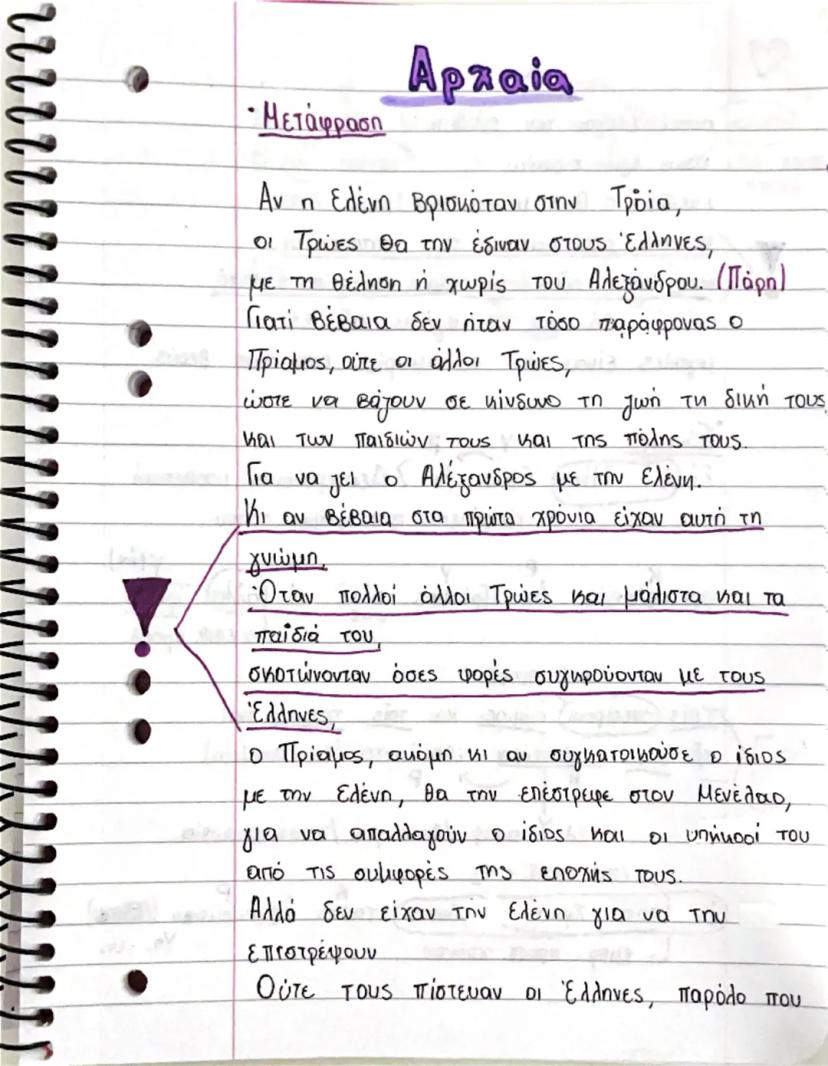 Αρχαία
• Μετάφραση
Αν η Ελένη βρισκόταν στην Τροία,
οι Τρώες θα την έδιναν στους Έλληνες,
με τη θέληση ή χωρίς του Αλεξάνδρου. (Πάρη)
Γιατί βέβαια δεν ήταν τόσο παράφρονας ο
Πρίαμος, ούτε οι άλλοι Τρώες,
ώστε να βάζουν σε κίνδυνο τη ζωή τη δική τους
και των παιδιών τους και της πόλης τους.
Για να ζει ο Αλέξανδρος με την Ελένη.
Κι αν βέβαια στα πρώτα χρόνια είχαν αυτή τη
γνώμη,
Όταν πολλοί άλλοι Τρώες και μάλιστα και τα
παιδιά του,
σκοτώνονταν όσες φορές συγκρούονταν με τους
Έλληνες,
ο Πρίαμος, ακόμη κι αν συγκατοικούσε ο ίδιος
με την Ελένη, θα την επέστρεφε στον Μενέλαο,
για να απαλλαγούν ο ίδιος και οι υπήκοοί του
από τις συμφορές της εποχής τους.
Αλλά δεν είχαν την Ελένη για να την
επιστρέψουν
Ούτε τους πίστευαν οι Έλληνες, παρόλο που